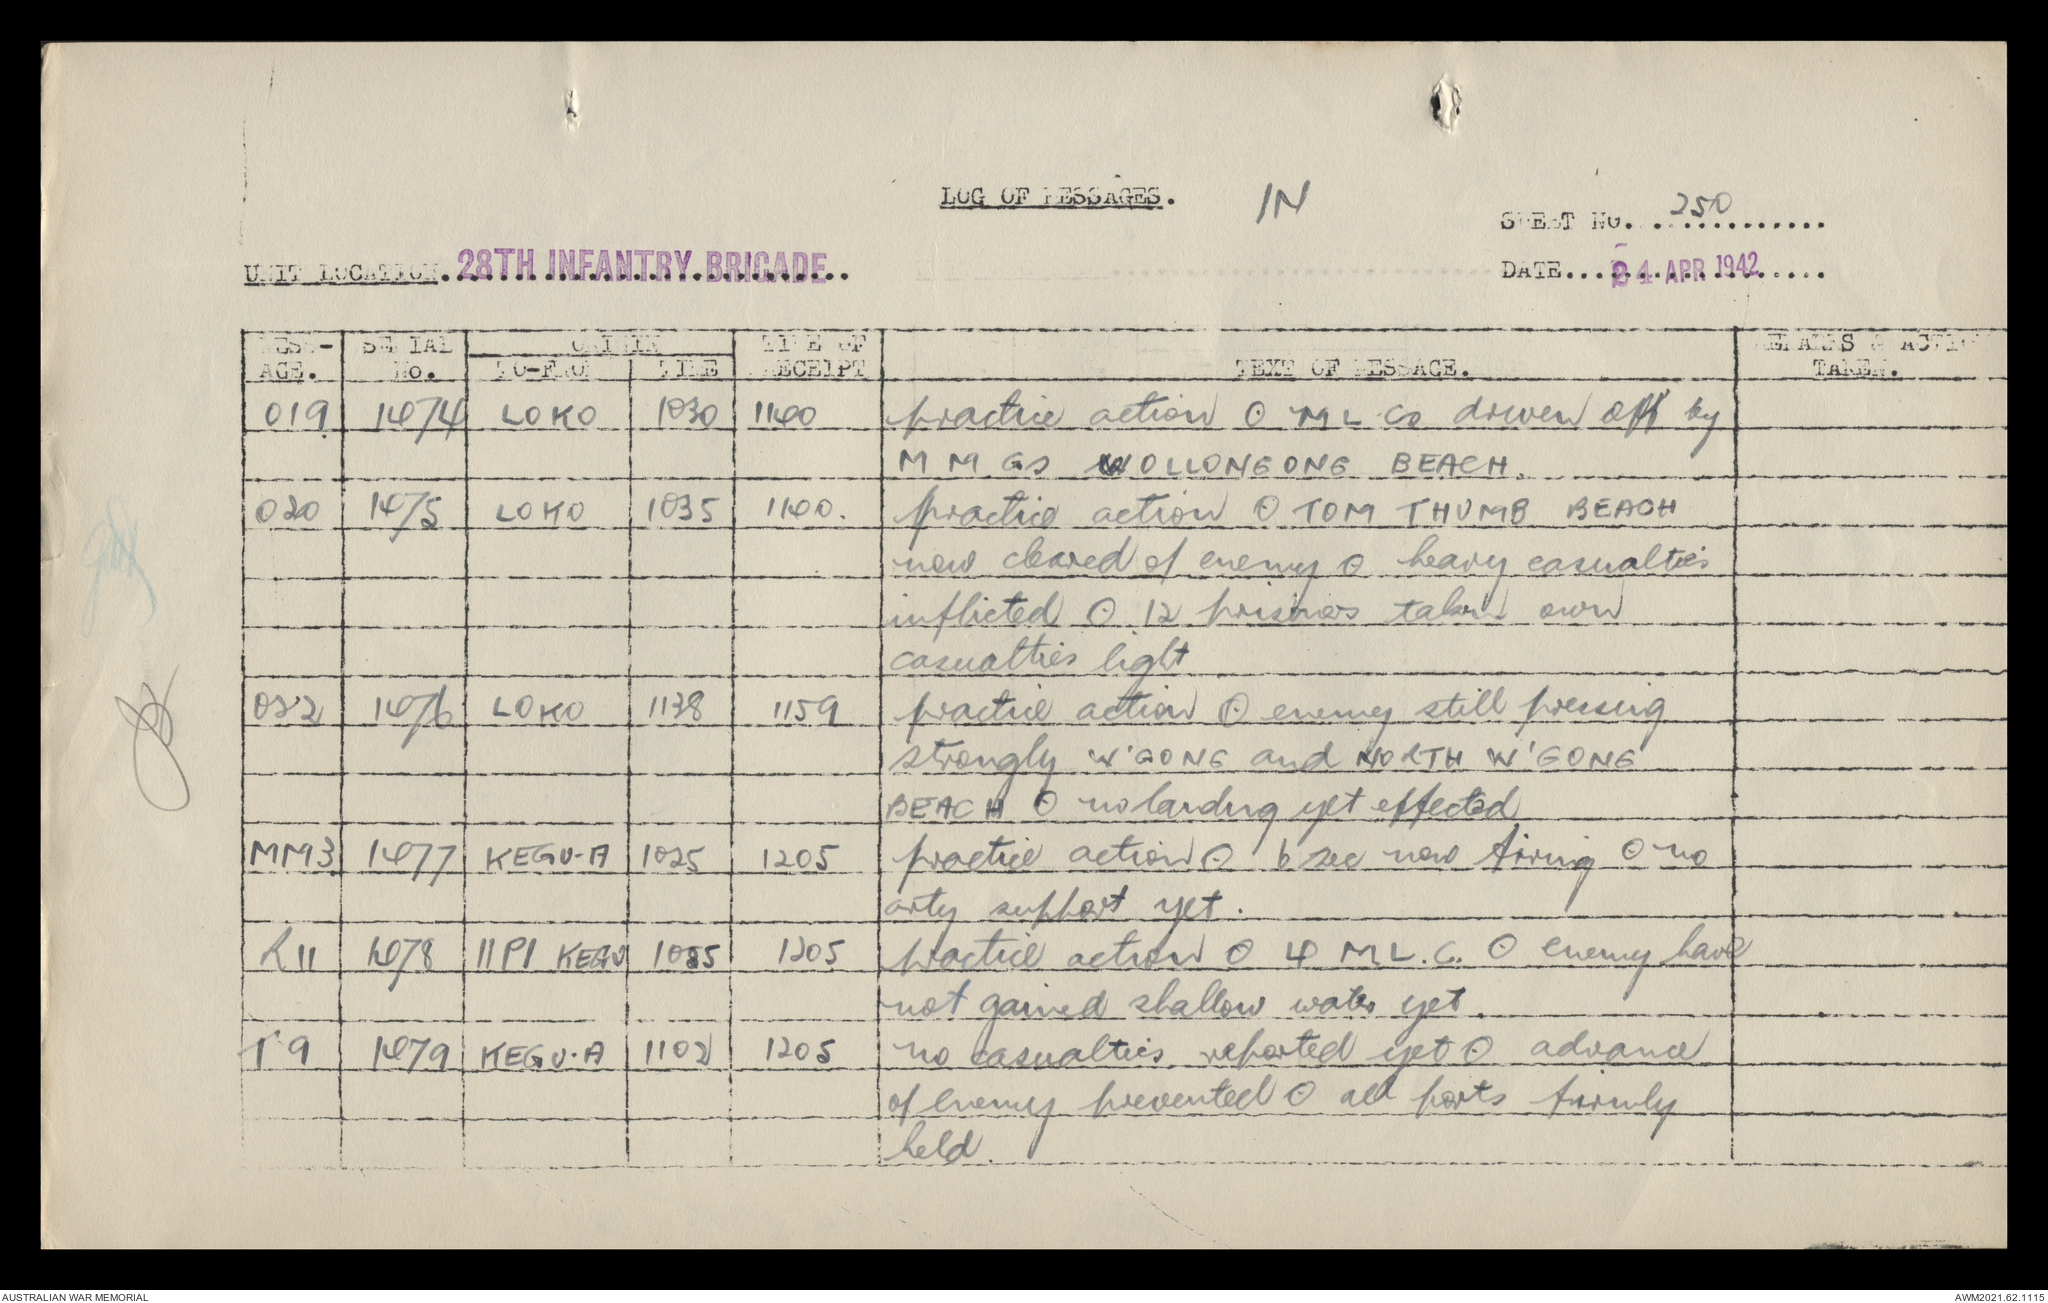 LOG OF MESSAGES. IN
SHEET NO. 250
UNIT LOCATION 28TH INFANTRY BRIGADE
DATE 24 APR 1942
MESS-AGE. SERIAL No. ORIGIN TO-FROM TIME TIME OF RECEIPT TEXT OF MESSAGE. REMARKS & ACTION TAKEN.
019 1474 LOKO 1030 1140 practice action ʘ MLCs driven off by
M M Gs WOLLONGONG BEACH.
020 1475 LOKO 1035 1140. practice action ʘ TOM THUMB BEACH
now cleared of enemy ʘ heavy casualties
inflicted ʘ 12 prisoners taken own
casualties light
022 1476 LOKO 1138 1159 practice action ʘ enemy still pressing
strongly W'GONG and NORTH W'GONG
BEACH ʘ no landing yet effected
MM3 1477 KEGU-A 1025 1205 practice action ʘ 6 sec now firing ʘ no
arty support yet.
R11 1478 11Pl KEGU 1205 practice action ʘ 4 M L. C. ʘ enemy have
not gained shallow water yet.
T9 1479 KEGU-A 1102 1205 no casualties reported yet ʘ advance
of enemy prevented ʘ all posts firmly
held.
AUSTRALIAN WAR MEMORIAL
AWM2021.62.1115